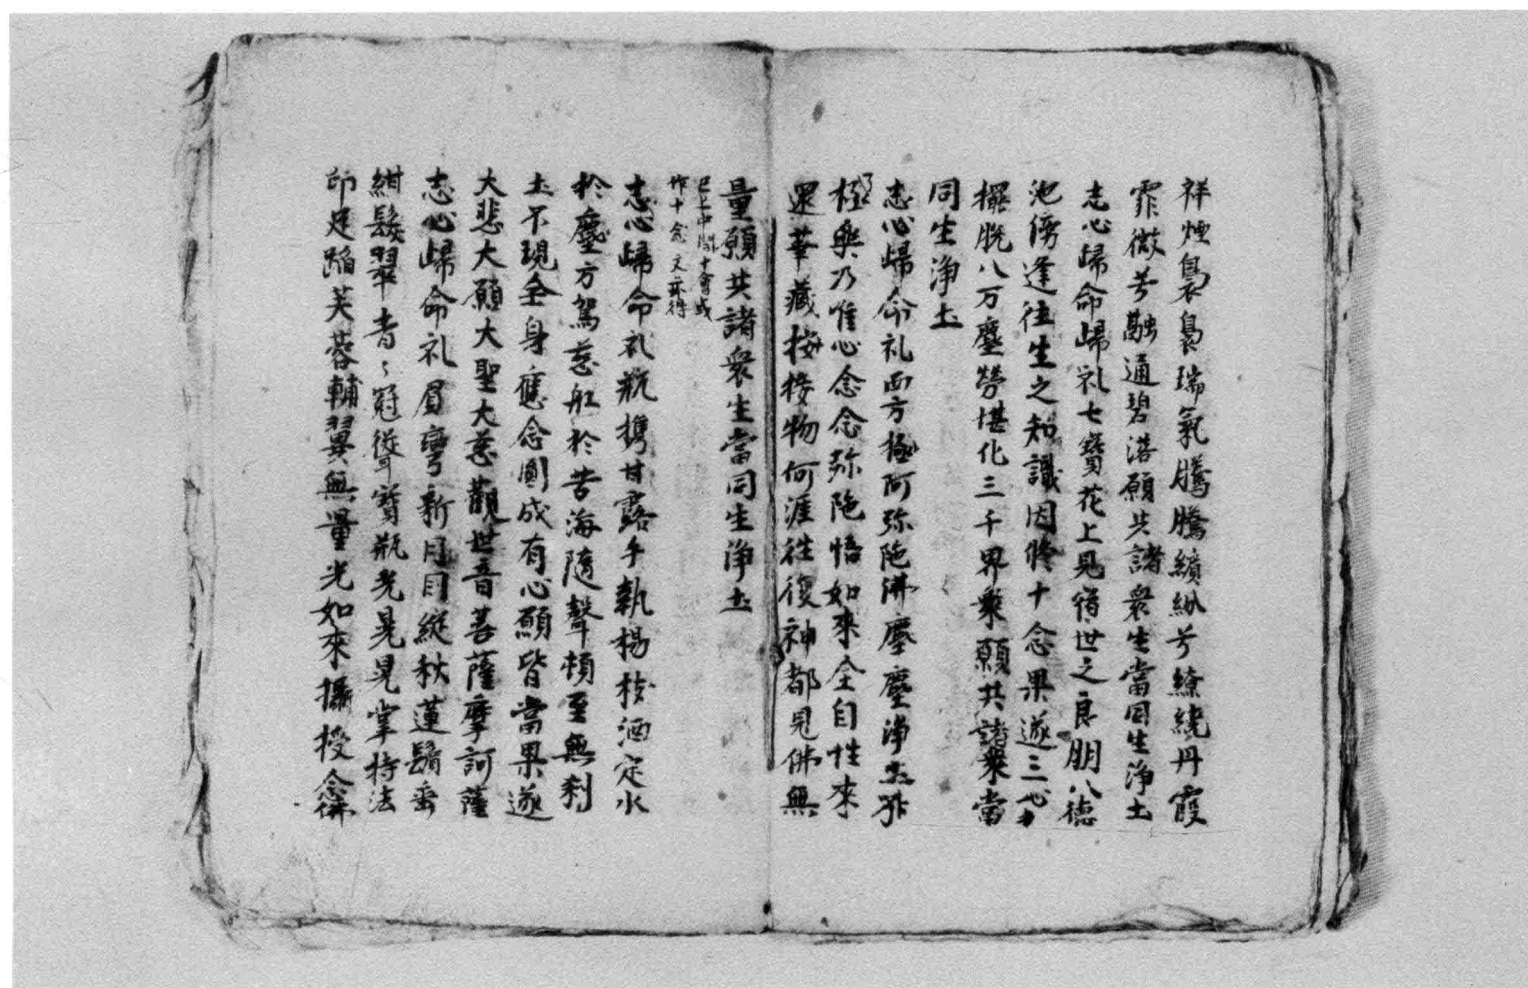 祥煙裊裊瑞氣騰騰繽紛兮繚繞丹霞
霏微兮融通碧落願共諸衆生當同生淨土
志心歸命歸礼七寶花上見宿世之良朋八德
池傍逢往生之知識因脩十念果遂三心
擺脫八万塵勞堪化三千界衆願共諸衆當
同生淨土
志心歸命礼西方極阿弥陁佛塵塵淨土非
極樂乃唯心念念弥陁悟如來全自性來
還華藏接物何涯徃復神都見佛無
量願共諸衆生當同生淨土
已上中間十會或
作十念文亦得
志心歸命礼瓶携甘露手執楊枝洒定水
於塵方駕慈舡於苦海隨聲頓至無刹
土不現全身應念圓成有心願皆當果遂
大悲大願大聖大慈觀世音菩薩摩訶薩
志心歸命礼眉彎新月目綻秋蓮鬚垂
紺髮翠青〻冠聳寶瓶光晃晃掌持法
印足蹈芙蓉輔翼無量光如來攝授念佛